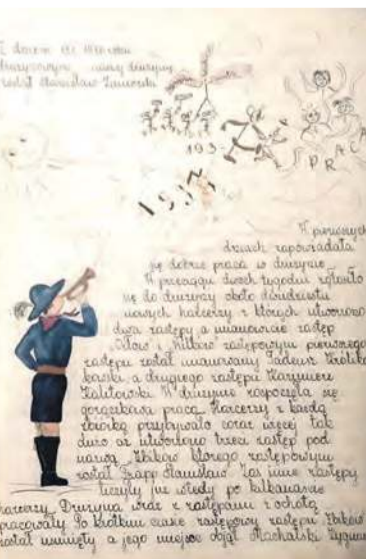 Z dniem 1.XI. 1936 roku
drużynowym naszej drużyny
został Stanisław
193
PRACA
1937
W pierwszych
dniach zapowiadała
się dobrze praca w drużynie
W przeciągu dwóch tygodni zgłosiło
się do drużyny około dwudziestu
nowych harcerzy z których utworzono
dwa zastępy a mianowicie zastęp
"Orłów i Wilków zastępowym pierwszego
zastępu został mianowany Tadeusz
a drugiego zastępu Kazimierz
W drużynie rozpoczęła się
gorączkowa praca. Harcerzy z każdą
zbiórką przybywało coraz więcej tak
dużo aż utworzono trzeci zastęp pod
nazwą Żbików którego zastępowym
został Stanisław Zaś inne zastępy
liczyły już wtedy po kilkanaście
harcerzy. Drużyna wraz z zastępami z ochotą
pracowały. Po krótkim czasie zastępowy zastępu Żbików
został usunięty a jego miejsce objął Machalski Zygmunt